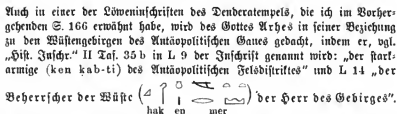 Auch in einer der Löweninschriften des Denderatempels, die ich im Vorher-
gehenden S. 166 erwähnt habe, wird des Gottes Arhes in seiner Beziehung
zu den Wüstengebirgen des Antäopolitischen Gaues gedacht, indem er, vgl.
„Hist. Inschr.“ II Taf. 35 b in L 9 der Inschrift genannt wird: „der stark-
armige (ken kab-ti) des Antäopolitischen Felsdistriktes“ und L 14 „der
Beherrscher der Wüste ( ) der Herr des Gebirges“.
hak en mer